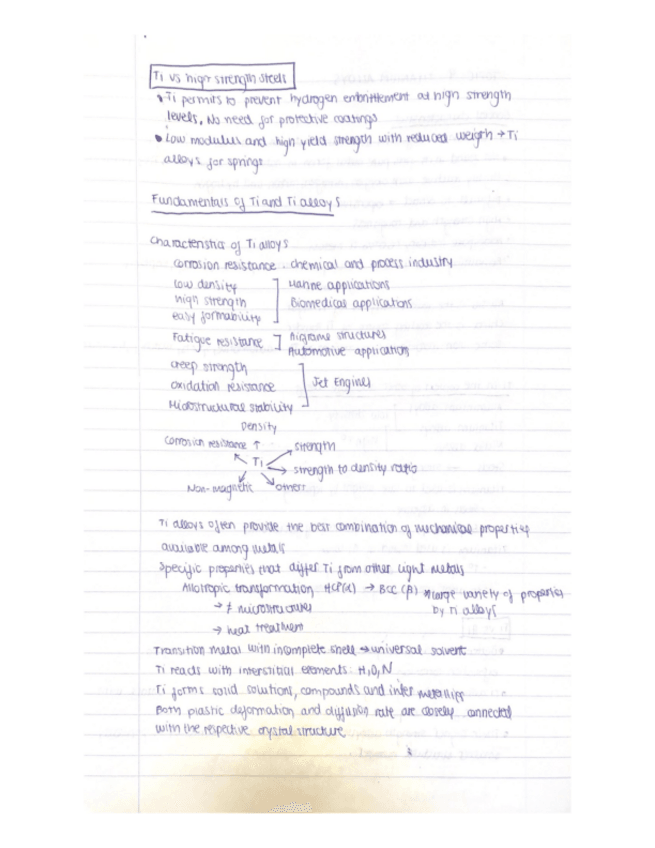 Ti vs high strength steels
• Ti permits to prevent hydrogen embrittlement at high strength
levels. No need for protective coatings
• Low modulus and high yield strength with reduced weigth → Ti
alloys for springs
Fundamentals of Ti and Ti alloys
Characteristics of Ti alloys
Corrosion resistance . chemical and process industry
Low density ] Marine applications
high strength Biomedical applications
easy formability
Fatigue resistance ] Aigrame structures
Automotive application
creep strength
oxidation resistance ] Jet Engines
Microstructural stability
Density
Corrosion resistance ↑ strength
Ti → strength to density ratio
Non-magnetic others
Ti alloys often provide the best combination of mechanical properties
available among metals
Specific properties that differ Ti from other light metals
Allotropic transformation HCP(α) → BCC (β) large variety of properties
→ ≠ microstructures by Ti alloys
→ heat treatment
Transition metal with incomplete shell → universal solvent
Ti reacts with interstitial elements: H, O, N
Ti forms solid solutions, compounds and inter metallics
Both plastic deformation and diffusion rate are closely connected
with the respective crystal structure